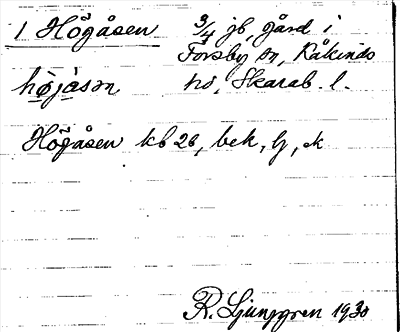 1 Högåsen 3/4 jb. gård i
Forsby sn, Kåkinds
höjåsn hd, Skarab. l.
Högåsen kb 26, bek, lj, ek
R. Ljunggren 1930